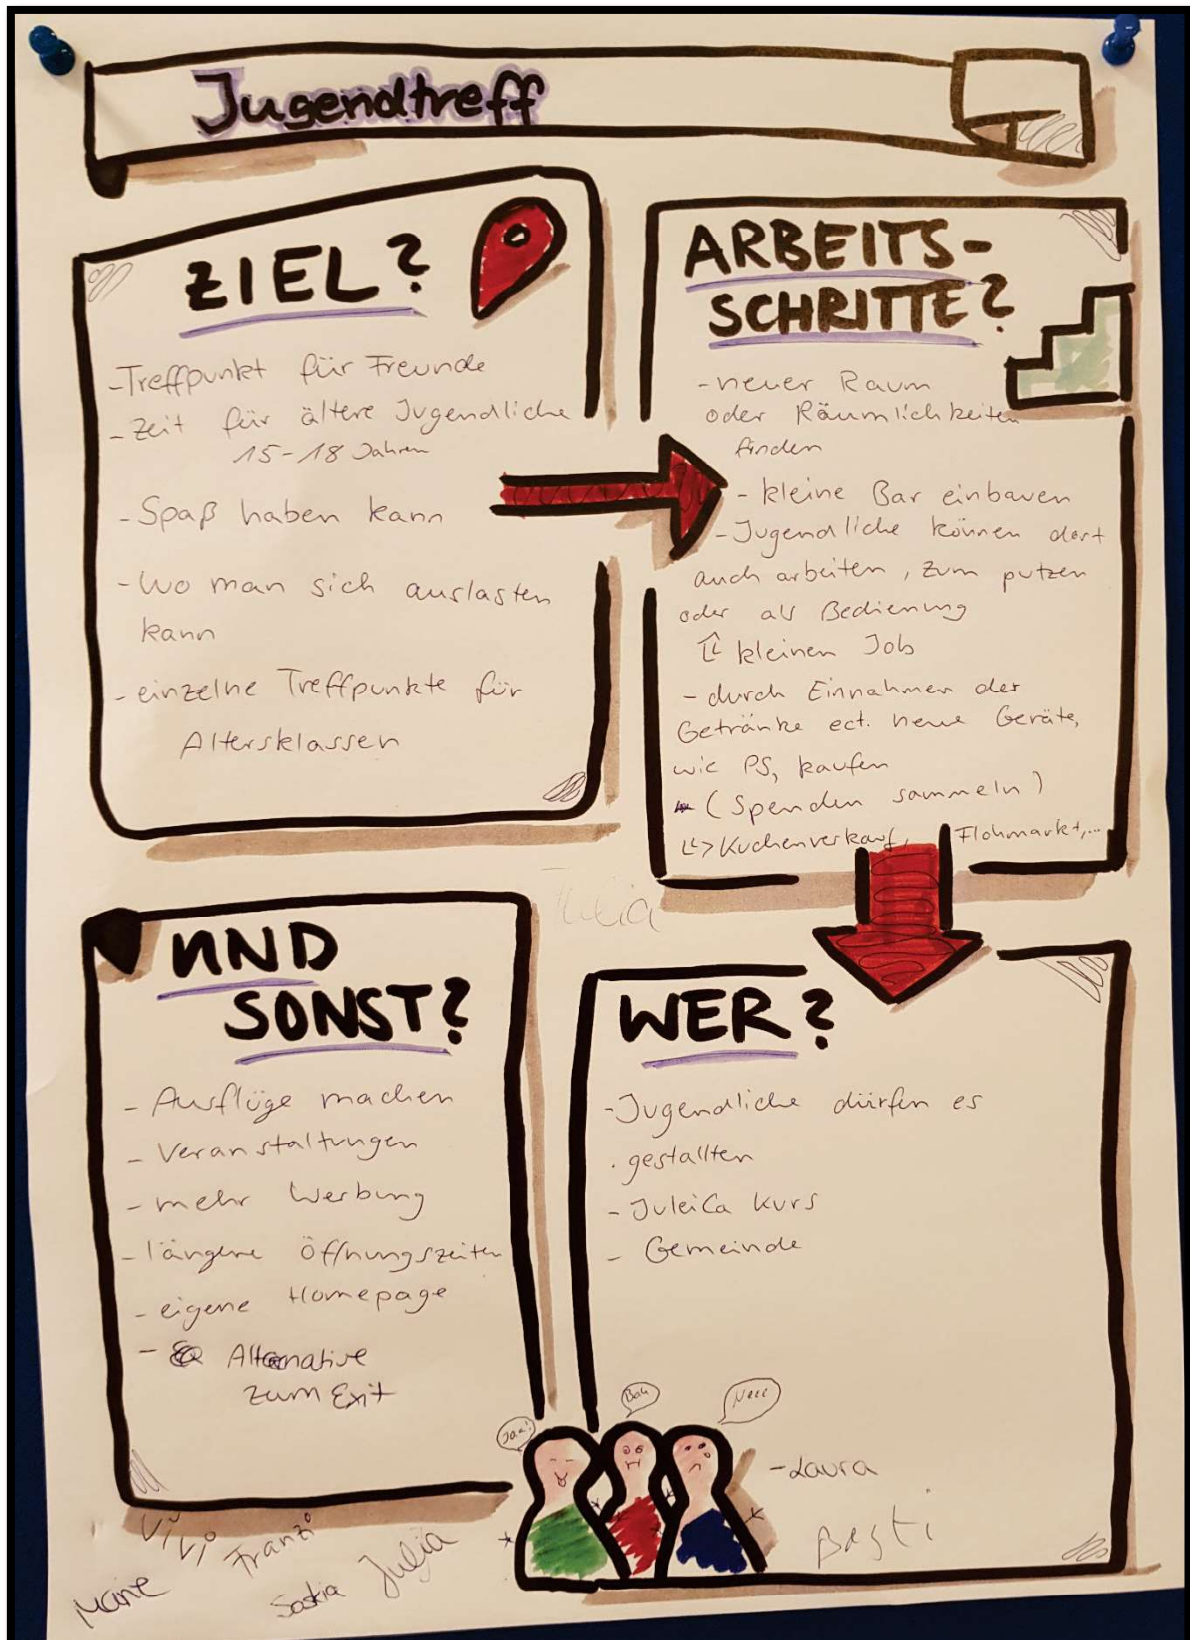 Jugendtreff
ZIEL?
-Treffpunkt für Freunde
- Zeit für ältere Jugendliche
15-18 Jahren
- Spaß haben kann
- Wo man sich auslasten
kann
- einzelne Treffpunkte für
Altersklassen
ARBEITS-
SCHRITTE?
- neuer Raum
oder Räumlichkeiten
finden
- kleine Bar einbauen
- Jugendliche können dort
auch arbeiten, zum putzen
oder als Bedienung
kleinen Job
- durch Einnahmen der
Getränke ect. neue Geräte,
wie PS, kaufen
(Spenden sammeln)
Kuchenverkauf, Flohmarkt,...
UND
SONST?
- Ausflüge machen
- Veranstaltungen
- mehr Werbung
- längere Öffnungszeiten
- eigene Homepage
- Alternative
zum Exit
WER?
- Jugendliche dürfen es
gestallten
- JuleiCa Kurs
- Gemeinde
Jaa!
Bah
Neee
- Laura
Basti
ViVi
Franzi
Julia
Marie
Saskia